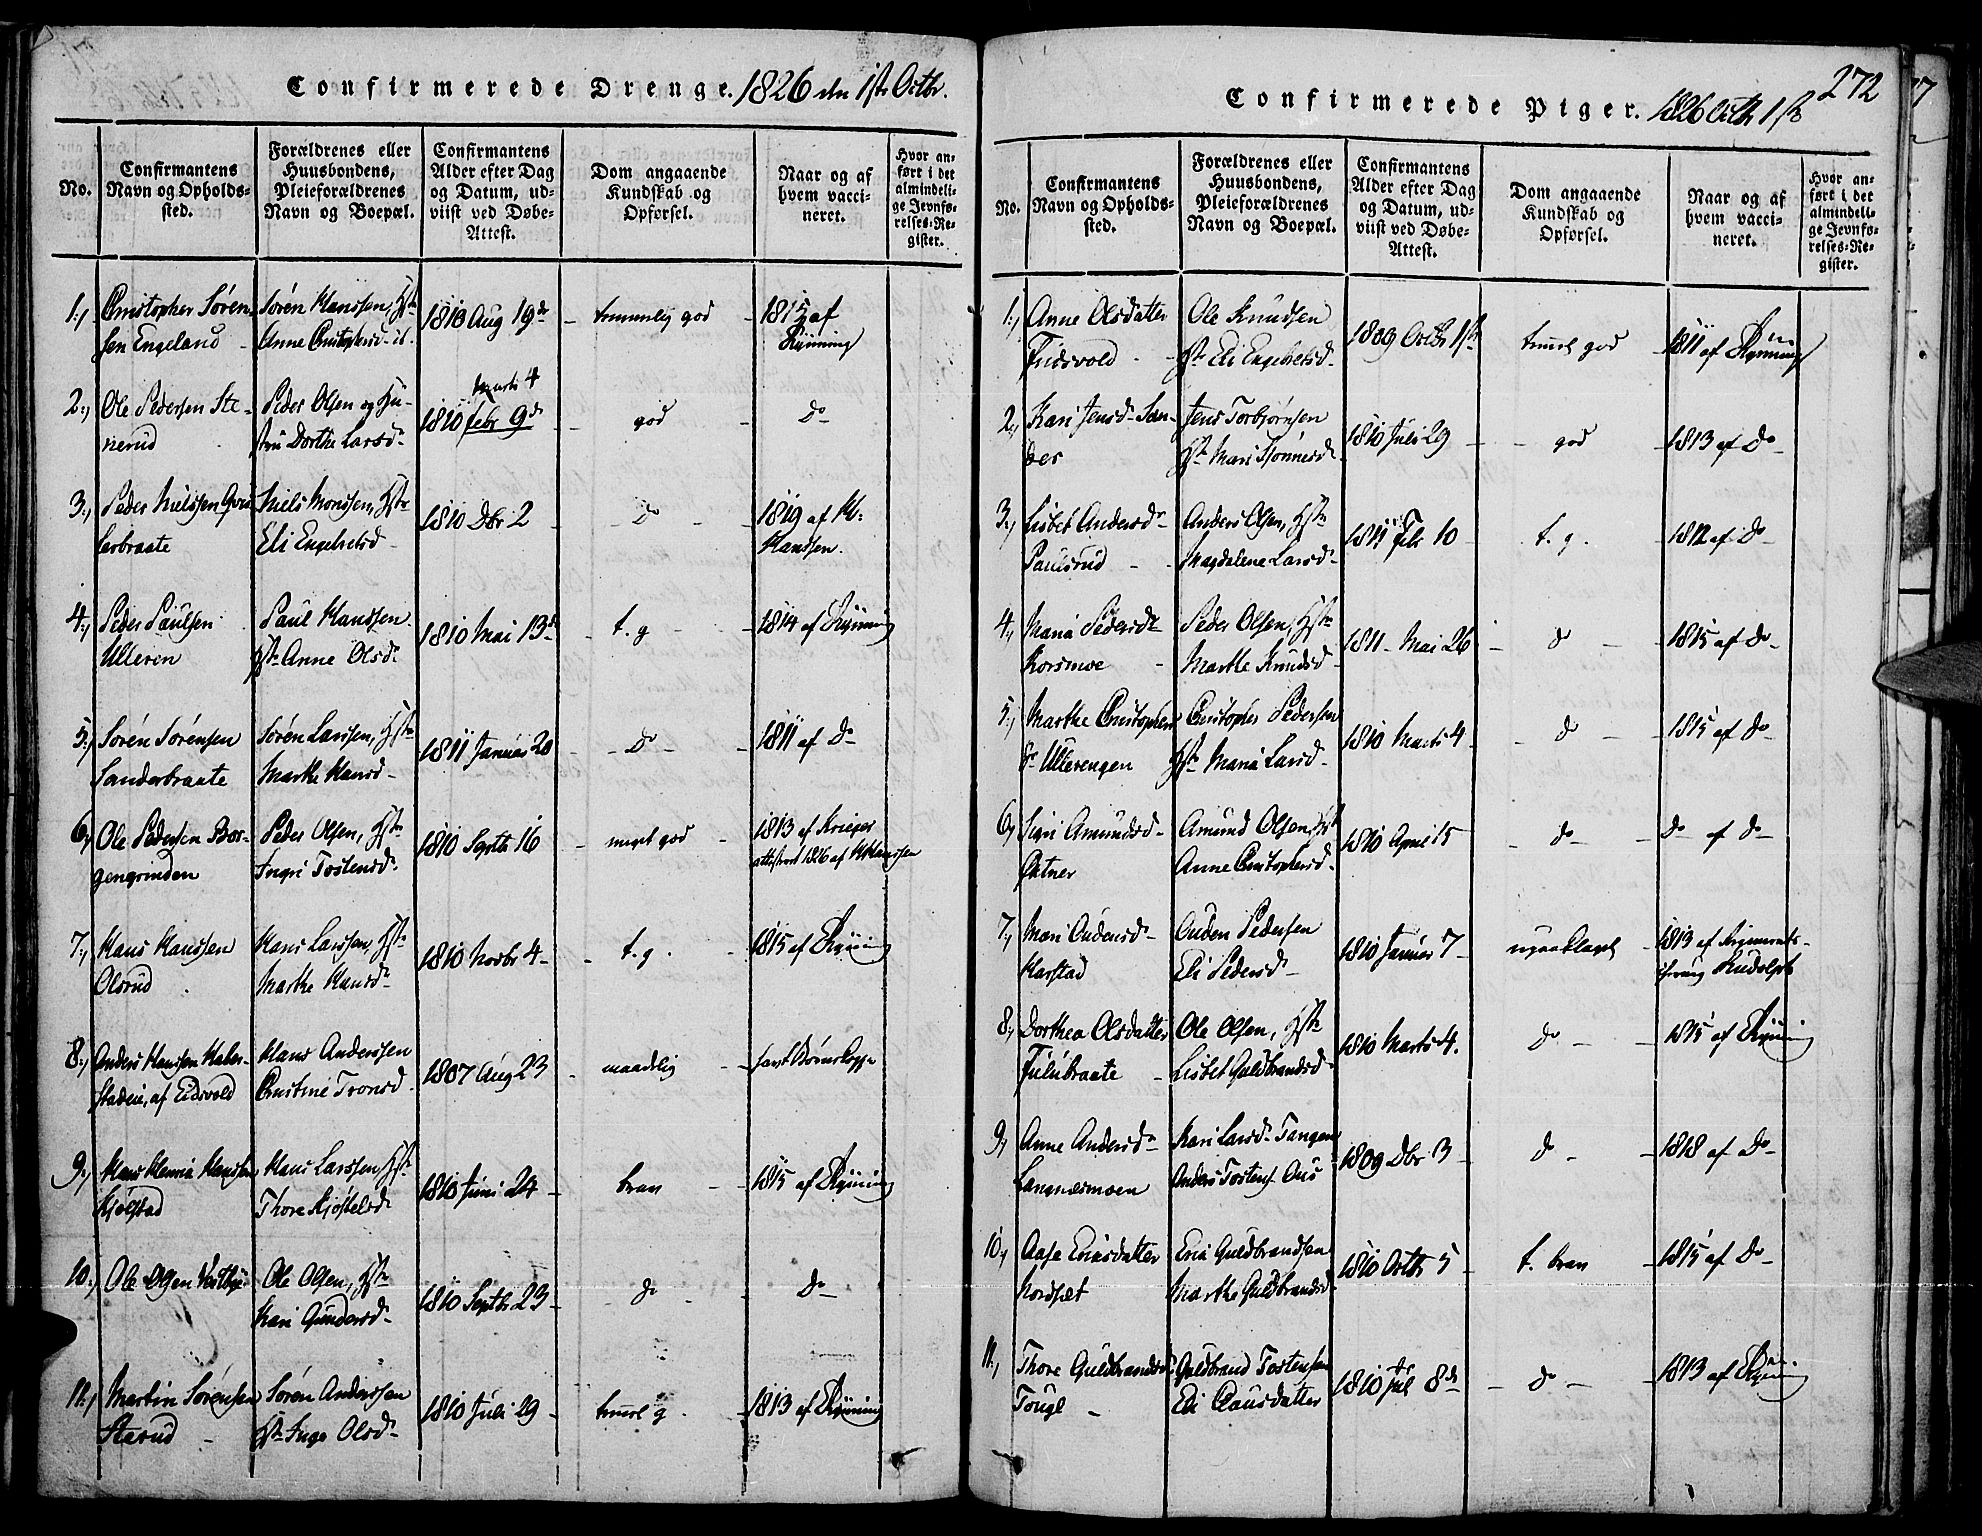 Confirmerede Drenge. 1826 den 1ste Octbr.
No.
Confirmantens
Navn og Opholds-
sted.
Forældrenes eller
Huusbondens,
Pleieforældrenes
Navn og Boepæl.
Confirmantens
Alder efter Dag
og Datum, ud-
viist ved Døbe-
Attest.
Dom angaaende
Kundskab og
Opførsel.
Naar og af
hvem vacci-
neret.
Hvor an-
ført i det
almindeli-
ge Jevnfø-
relses-Re-
gister.
1.) Christopher Søren-
sen Engeland
Søren Hanssen, Hstr
Anne Christophersd
1810 Aug 19de
temmelig god
1815 af
Rynning
2.) Ole Pedersen Ste-
nerud
Peder Olsen og Hu-
stru Dorthe Larsd.
Marts 4
1810 febr 9de
god
do
3.) Peder Nielssen
Niels Monssen, Hstr
Eli Engebretsd
1810 Dbr 2
do
1819 af H:
Hanssen.
4.) Peder Paulsen
Ulleren
Paul Hanssen
Hstr Anne Olsdr
1810 Mai 13de
t. g
1814 af Rynning
5.) Søren Sørensen
Sanderbraate
Søren Larssen, Hstr
Marthe Hansd
1811 Januar 20
do
1811 af do
6.) Ole Pedersen Bor-
gengrinden
Peder Olsen, Hstr
Ingri Tostensdr
1810 Septbr 16
meget god
1813 af Krieger
attesteret 1826 af H Hanssen
7.) Hans Hanssen
Olsrud
Hans Larssen, Hstr
Marthe Hansdr
1810 Novbr 4
t. g.
1815 af Rynning
8.) Anders Hanssen Haber-
staden, af Eidsvold
Hans Anderssen
Christine Tronsd
1807 Aug 23
maadelig
havt Børnekopper
9.) Hans Henric Hanssen
Kjølstad
Hans Larssen, Hstr
Thore Kjøstelsdr
1810 Juni 24
brav
1815 af Rynning
10.) Ole Olsen Vestbye
Ole Olsen, Hstr
Kari Gundersd
1810 Septbr 23
do
do
11.) Martin Sørensen
Sterud
Søren Anderssen
Hstr Inge Olsd
1810 Juli 29
g.
1813 af Rynning
272
Confirmerede Piger. 1826 Octbr 1ste
No.
Confirmantens
Navn og Opholds-
sted.
Forældrenes eller
Huusbondens,
Pleieforældrenes
Navn og Boepæl.
Confirmantens
Alder efter Dag
og Datum, ud-
viist ved Døbe-
Attest.
Dom angaaende
Kundskab og
Opførsel.
Naar og af
hvem vacci-
neret.
Hvor an-
ført i det
almindeli-
ge Jevnfø-
relses-Re-
gister.
1.) Anne Olsdatter
Fredsvold
Ole Knudsen
Hstr Eli Engebretsd
1809 Octbr 1ste
god
1811 af Rynning
2.) Kari Jensdr San-
der
Jens Torbjørnsen
Hstr Mari
1810 Juli 29
god
1813 af do
3.) Lisbet Andersdr
Paulsrud
Anders Olsen, Hstr
Magdalene Larsdr
1811 Febr 10
t. g.
1812 af do
4.) Maria Pedersdr
Korsmoe
Peder Olsen, Hstr
Marthe Knudsd
1811 Mai 26
do
1815 af do
5.) Marthe Christophers-
dr Ullerengen
Christopher Pedersen
Hstr Maria Larsd
1810 Marts 4
do
1815 af do
6.) Siri Amundsd
Østner
Amund Olsen, Hstr
Anne Christophersd
1810 April 15
do
do af do
7.) Mari Audensd
Harstad
Auden Pedersen
Eli Pedersd
1810 Januar 7
upaaklaget
1813 af Regiments-
chirurg Rudolph
8.) Dorthea Olsdatter
Julubraate
Ole Olsen, Hstr
Lisbet Guldbrandsd
1810 Marts 4.
do
1815 af Rynning
9.) Anne Andersdr
Langnæsmoen
Kari Larsdr Tangen
Anders Tostens. Aus
1809 Dbr 3
do
1818 af do
10.) Aase Ericsdatter
Nordsæt
Eric Guldbrandsen
Marthe Guldbrandsd
1810 Octbr 5
t. brav
1815 af do
11.) Thore Guldbrandsd
Tougl
Guldbrand Tostensen
Eli Clausdatter
1810 Jul 8de
do
1813 af Rynning